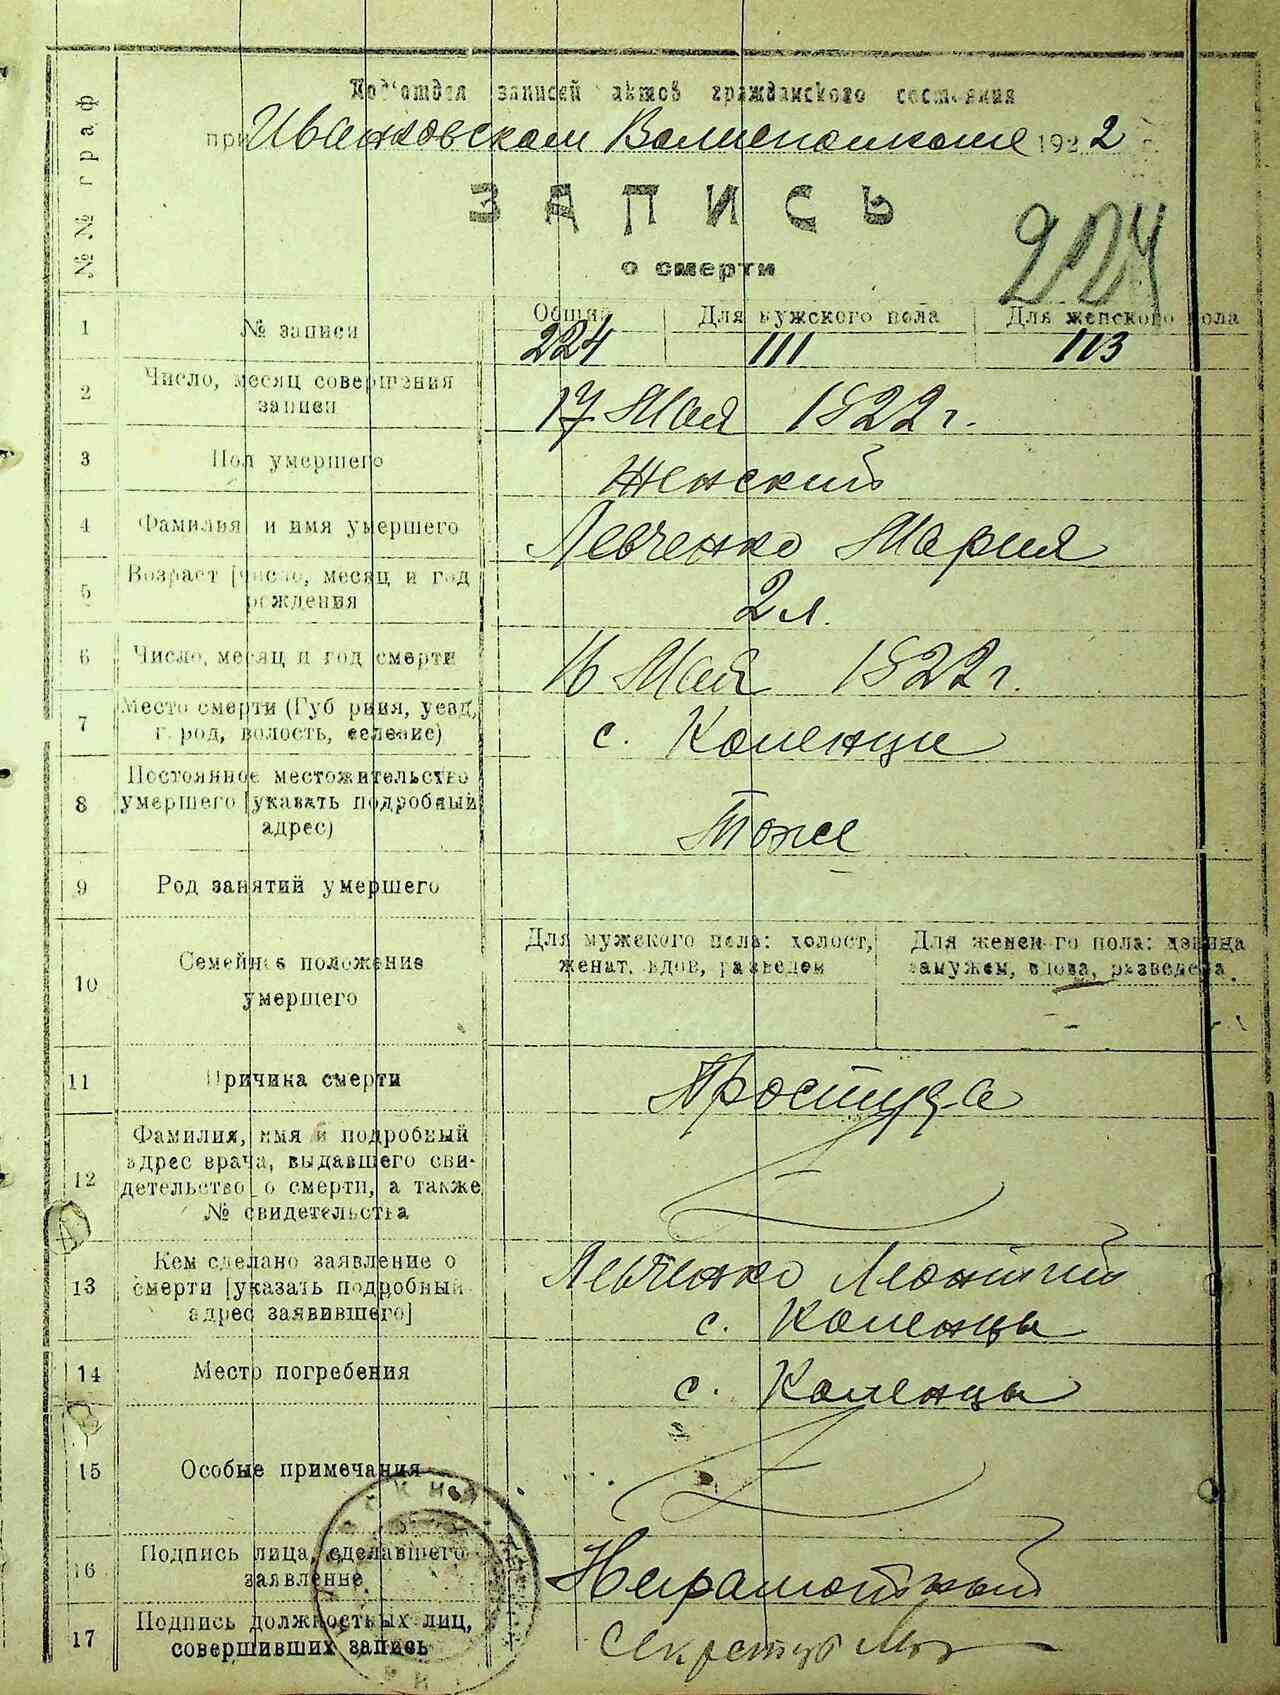 Под'отдел записей актов гражданского состояния
при Иванковском Волисполкоме 1922 г.
ЗАПИСЬ
о смерти
224
№№ граф
1 № записи Общая Для мужского пола Для женского пола
224 111 113
2 Число, месяц совершения
записи
17 Мая 1822 г.
3 Пол умершего Женский
4 Фамилья и имя умершего Левченко Мария
5 Возраст [число, месяц и год
рождения
2 л.
6 Число, месяц и год смерти 16 Мая 1822 г.
7 Место смерти (Губерния, уезд,
город, волость, селение)
с. Коленци
8 Постоянное местожительство
умершего [указать подробный
адрес)
Тоже
9 Род занятий умершего
10 Семейное положение
умершего
Для мужского пола: холост,
женат, вдов, разведен
Для женского пола: девица
замужем, вдова, разведена.
11 Причина смерти Простуда
12 Фамилия, имя и подробный
адрес врача, выдавшего сви-
детельство о смерти, а также
№ свидетельства
13 Кем сделано заявление о
смерти [указать подробный
адрес заявившего]
Левченко Леонтий
с. Коленцы
14 Место погребения с. Коленцы
15 Особые примечания
16 Подпись лица, сделавшего
заявление
Неграмотный
17 Подпись должностных лиц,
совершивших запись